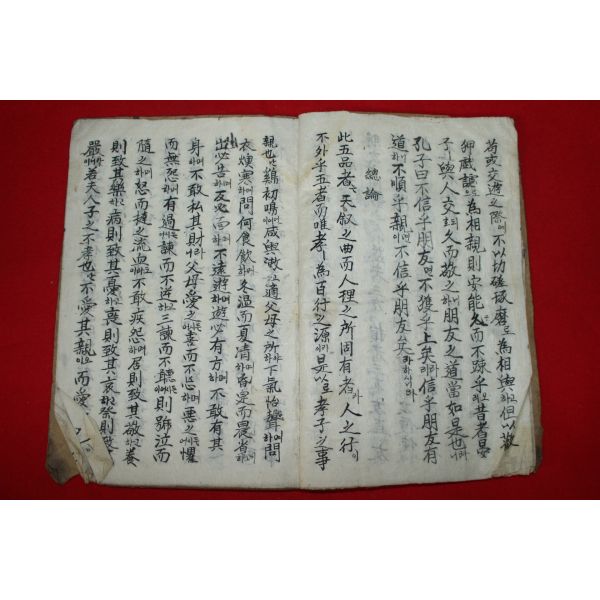 苟或交遊之際에不以切磋琢磨로爲相與하고但以歡
狎戲謔으로爲相親則安能久而不疎乎리오昔者晏
子與人交호되久而敬之하니朋友之道當如是也니라
孔子曰不信乎朋友면不獲乎上矣리라信乎朋友有
道하니不順乎親이면不信乎朋友矣라하시니라
總論
此五品者天敘之典而人理之所固有者라人之行이
不外乎五者而唯孝爲百行之源이라是以로孝子之事
親也는鷄初鳴이어든咸盥漱하고適父母之所하야下氣怡聲하야問
衣燠寒하며問何食飮하며冬溫而夏凊하며昏定而晨省하며
出必告하며反必面하며不遠遊하며遊必有方하며不敢有其
身하며不敢私其財니라父母愛之어시든喜而不忘하며惡之어시든懼
而無怨하며有過어시든諫而不逆하고三諫而不聽이어시든則號泣而
隨之하며怒而撻之流血이라도不敢疾怨하며居則致其敬하고養
則致其樂하고病則致其憂하고喪則致其哀하고祭則致其
嚴이니라若夫人子之不孝也는不愛其親이오而愛